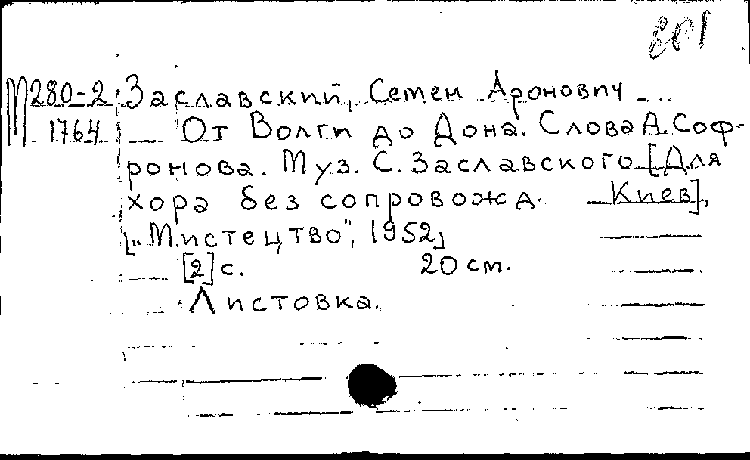 801
М280-2 Заславский, Семен Аронович
1764 От Волги до Дона. Слова А. Соф-
ронова. Муз. С. Заславского [Для
хора без сопровожд. Киев],
[„Мистецтво”, 1952]
[2] с. 20 см.
Листовка.